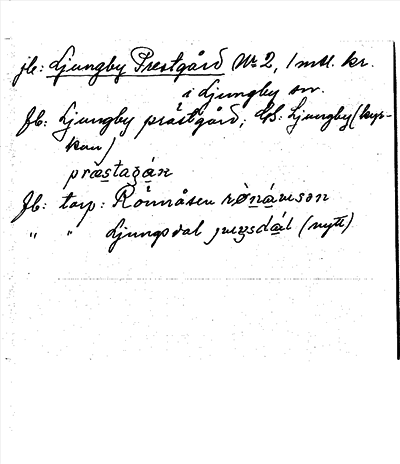 jb: Ljungby Prestgård No 2, 1 mtl. kr.
i Ljungby sn.
fb: Ljungby prästgård; Ljungby (kyr-
kan)
præstagán
fb: torp: Rönnåsen rønáusən
" " Ljungsdal juŋsdál (nytt)